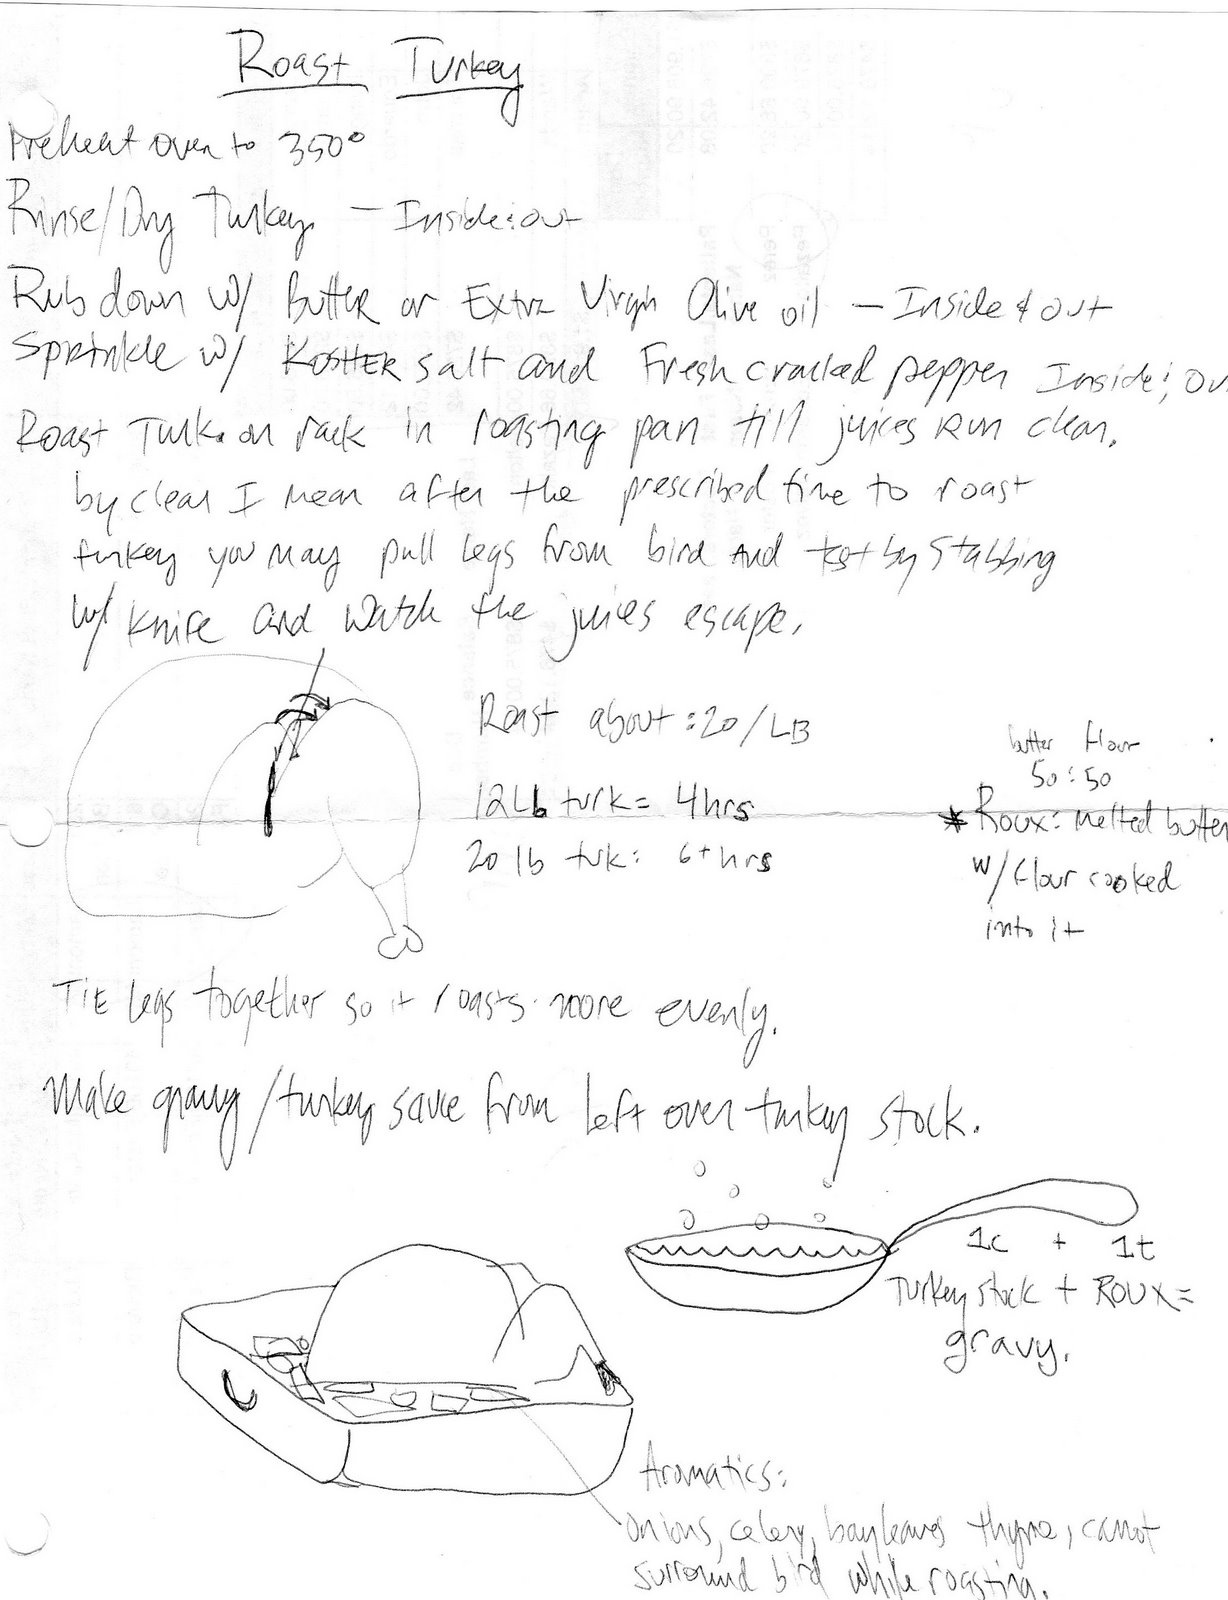 Roast Turkey
Preheat oven to 350°
Rinse/Dry Turkey - Inside & out
Rub down w/ Butter or Extra Virgin Olive oil - Inside & out
Sprinkle w/ KOSHER salt and Fresh cracked pepper Inside & ou
Roast Turk. on rack in roasting pan till juices Run clear.
by clear I mean after the prescribed time to roast
turkey you may pull legs from bird And test by Stabbing
w/ knife and watch the juices escape.
Roast about : 20/LB
12 Lb turk = 4hrs
20 lb turk : 6+hrs
butter flour
50 : 50
* Roux: melted butter
w/ flour cooked
into it
TiE legs together so it roasts more evenly.
Make gravy/turkey sauce from left over turkey stock.
1c + 1t
Turkey stock + Roux =
gravy.
Aromatics:
onions, celery, bayleaves thyme, carrot
surround bird while roasting.